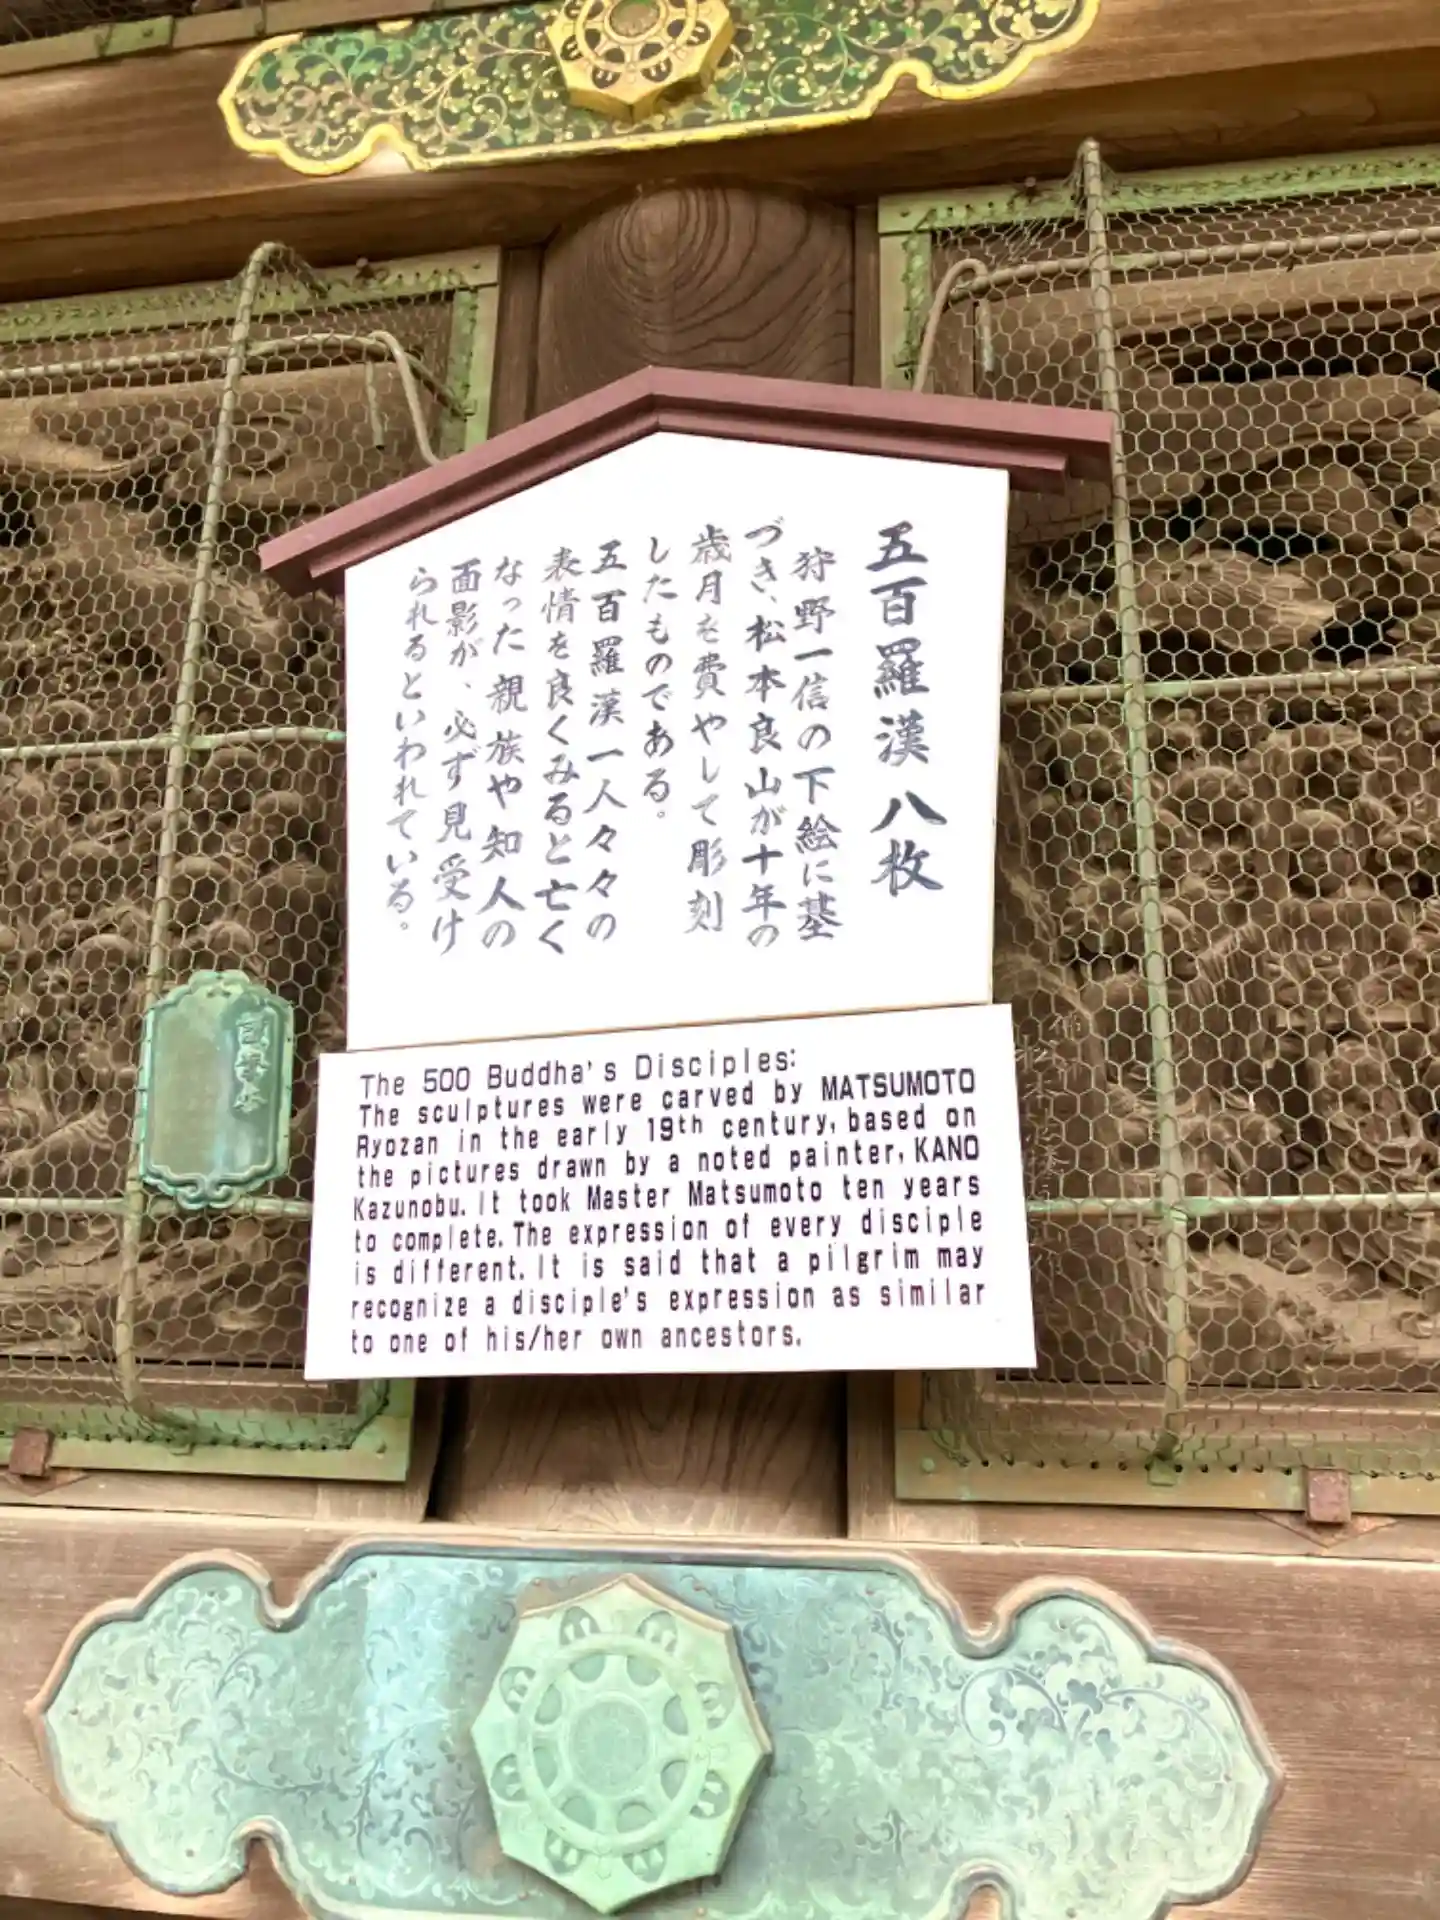 五百羅漢 八枚
狩野一信の下絵に基
づき、松本良山が十年の
歳月を費やして彫刻
したものである。
五百羅漢一人々々の
表情を良くみると亡く
なった親族や知人の
面影が、必ず見受け
られるといわれている。
The 500 Buddha's Disciples:
The sculptures were carved by MATSUMOTO
Ryozan in the early 19th century, based on
the pictures drawn by a noted painter, KANO
Kazunobu. It took Master Matsumoto ten years
to complete. The expression of every disciple
is different. It is said that a pilgrim may
recognize a disciple's expression as similar
to one of his/her own ancestors.